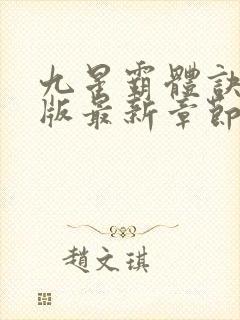 九星霸體訣
版最新章節
趙文琪